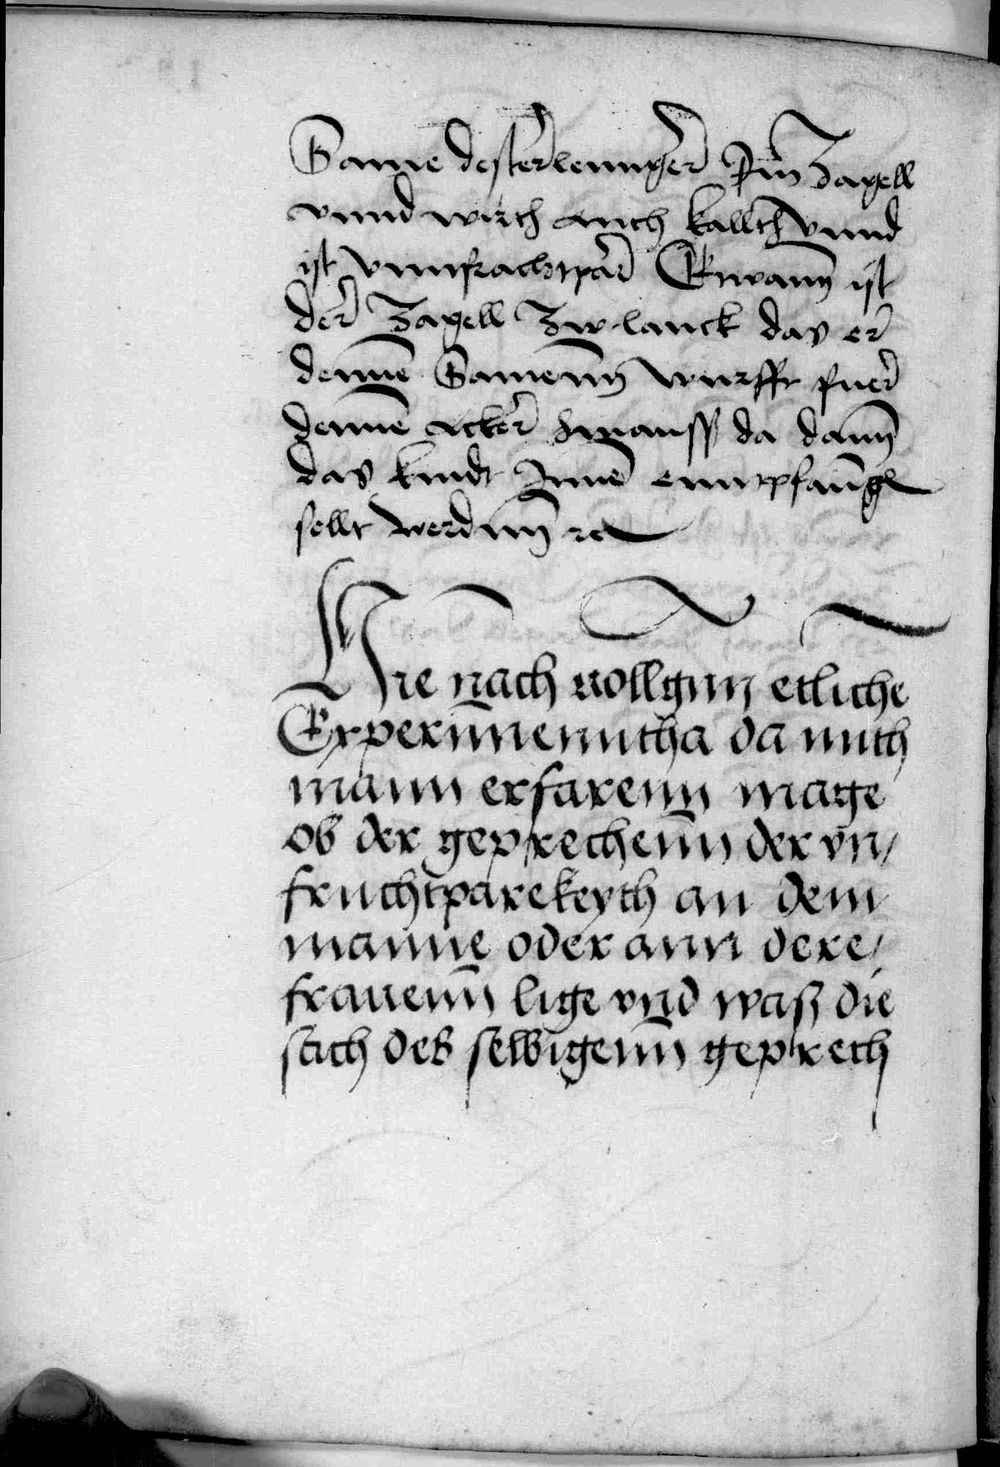 Same desterlennger Im Zagell
vnnd wirth auch kallth vnnd
ist vnnfrachtpar Etwann ist
der Zagell Zw lanck das er
denne Samenn wurfft fuer
denne acker hinauss da dann
das kindt Inne enntpfang
sellt werdenn
Hie nach vollgnn etliche
Experimenntha da mith
mann erfarenn mage
ob der geprechenn der vn/
fruchtparekeyth an dem
manne oder ann dere/
frauenn lige vnd wasz die
sach des selbigenn geprech